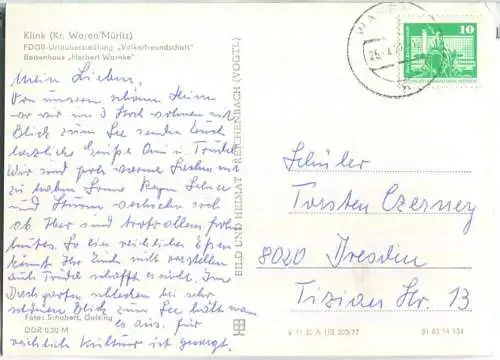 Klink (Kr. Waren/Müritz)
FDGB-Urlaubersiedlung „Völkerfreundschaft"
Bettenhaus „Herbert Warnke"
Meine Lieben,
Von unserem schönen Heim
wo wir im 3 Stock wohnen mit
Blick zum See senden Euch
herzliche Grüße Omi u. Trudel
Wir sind froh warme Sachen mit
zu haben Sonne Regen Schnee
und Sturm wechseln sich
ab. Hier sind trotz allem froh
So ein reichliches Essen
könnt Ihr Euch nicht vorstellen
auch Trudel schafft es nicht. Im
bei sehr
schönem Blick zum See hält man
es aus. für
reichlich Kultur ist gesorgt.
Foto: Schubert,
DDR 0,20 M
BILD UND HEIMAT REICHENBACH (VOGTL)
WAREN
10
Schüler
Torsten Czerney
8020 Dresden
Tizian Str. 13
V 11 50 A 1/B 305/77
01 03 14 134